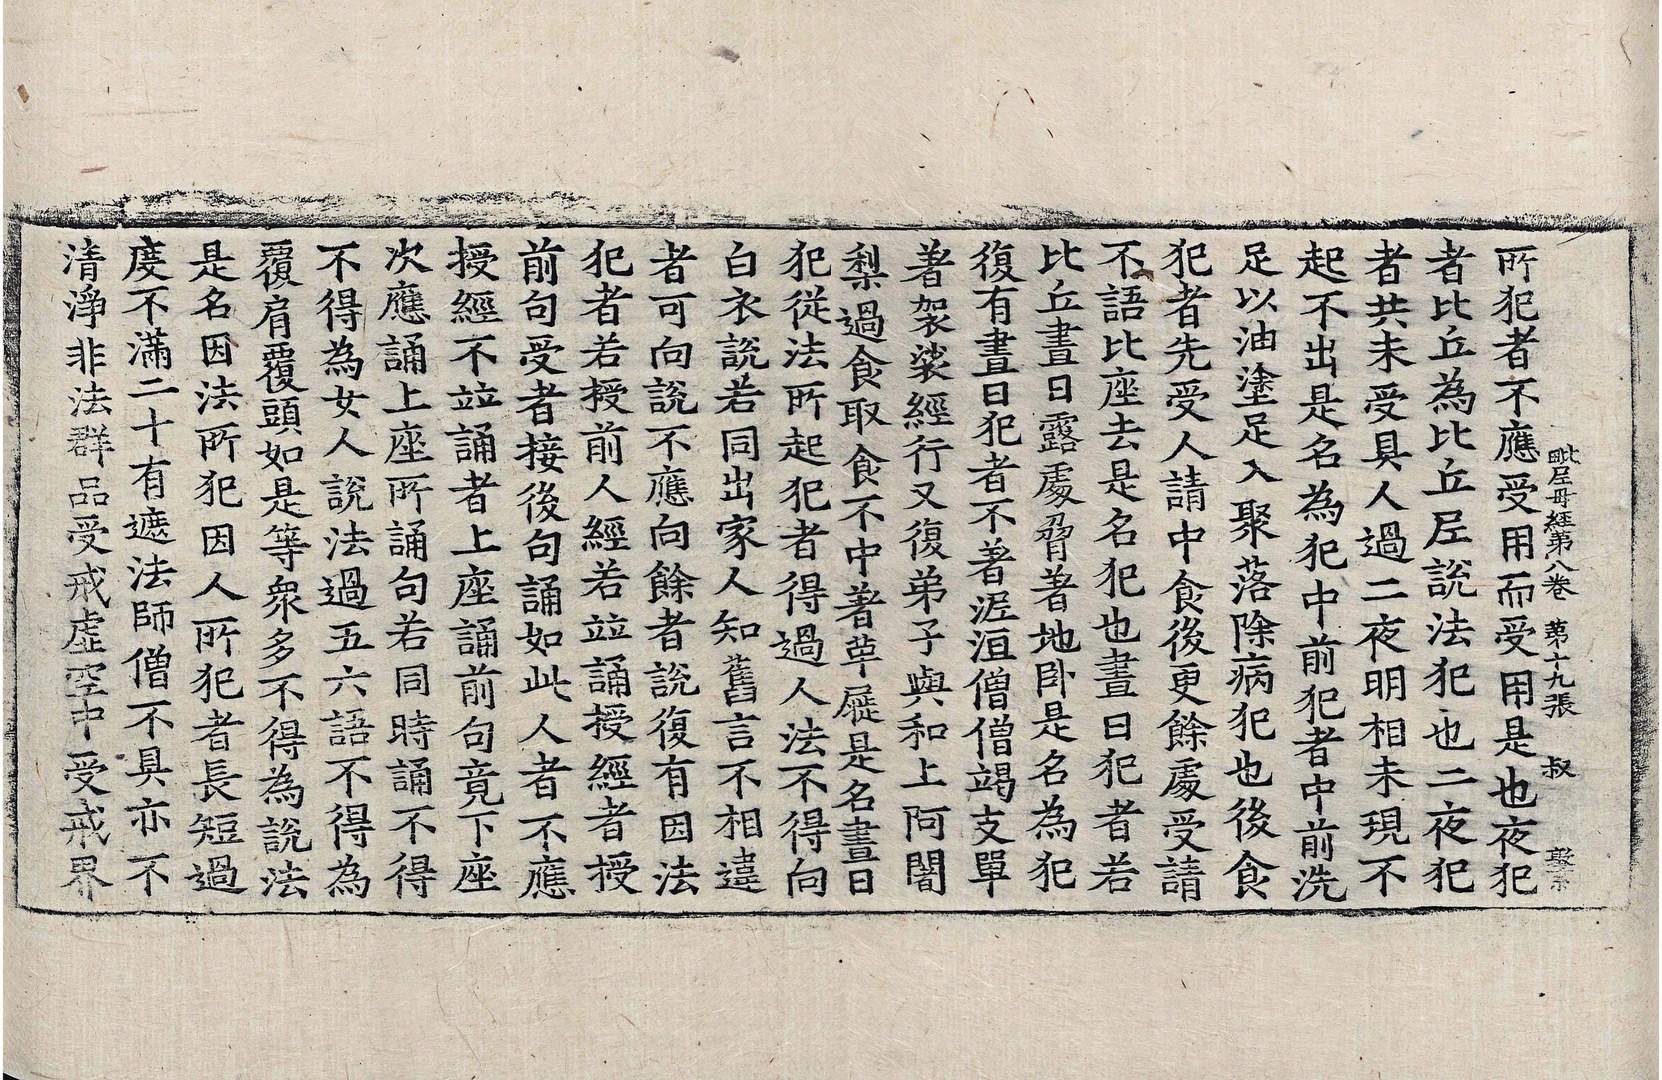 毗尼母經第八卷 第十九張 叔
所犯者不應受用而受用是也夜犯
者比丘為比丘尼說法犯也二夜犯
者共未受具人過二夜明相未現不
起不出是名為犯中前犯者中前洗
足以油塗足入聚落除病犯也後食
犯者先受人請中食後更餘處受請
不語比座去是名犯也晝日犯者若
比丘晝日露處脅著地卧是名為犯
復有晝日犯者不著泥洹僧僧竭支單
著袈裟經行又復弟子與和上阿闍
梨過食取食不中著草屣是名晝日
犯從法所起犯者得過人法不得向
白衣說若同出家人知舊言不相違
者可向說不應向餘者說復有因法
犯者若授前人經若並誦授經者授
前句受者接後句誦如此人者不應
授經不並誦者上座誦前句竟下座
次應誦上座所誦句若同時誦不得
不得為女人說法過五六語不得為
覆肩覆頭如是等衆多不得為說法
是名因法所犯因人所犯者長短過
度不滿二十有遮法師僧不具亦不
清淨非法群品受戒虛空中受戒界